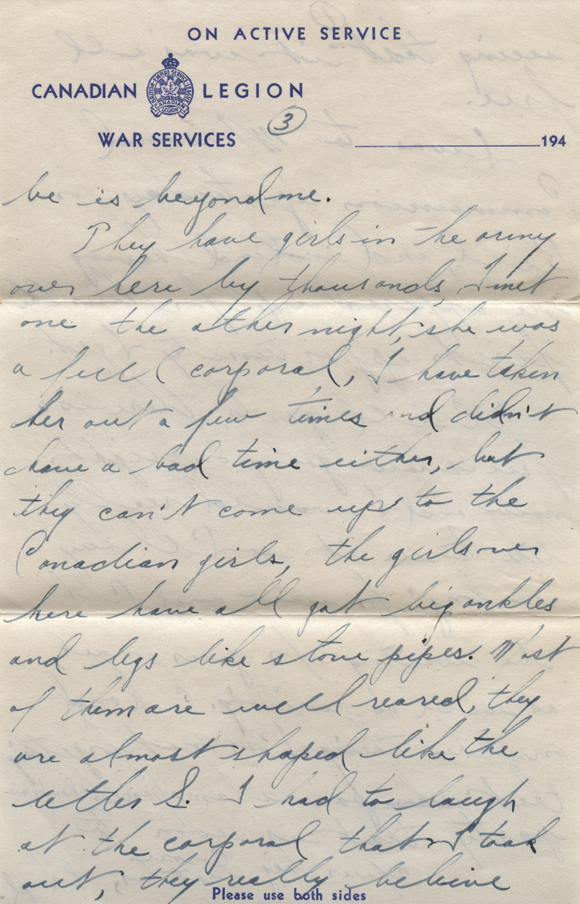 ON ACTIVE SERVICE
CANADIAN LEGION
WAR SERVICES
3
194
be is beyond me.
They have girls in the army
over here by thousands, I met
one the other night, she was
a full corporal, I have taken
her out a few times and didn't
have a bad time either, but
they can't come up to the
Canadian girls, the girls over
here have all got big ankles
and legs like stove pipes. Most
of them are well reared, they
are almost shaped like the
letter S. I had to laugh
at the corporal that I took
out, they really believe
Please use both sides